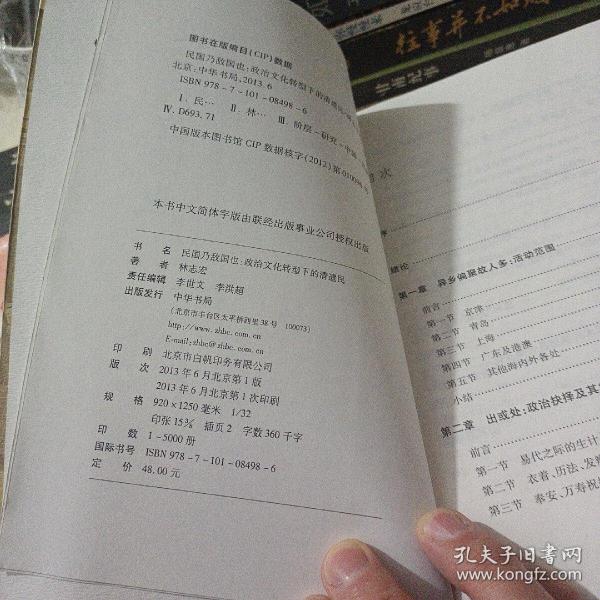 图书在版编目(CIP)数据
民国乃敌国也:政治文化转型下的清遗民
北京:中华书局,2013.6
ISBN 978-7-101-08498-6
Ⅰ.民… Ⅱ.林… Ⅲ.阶层-研究-中国
Ⅳ.D693.71
中国版本图书馆CIP数据核字(2012)第
本书中文简体字版由联经出版事业公司授权出版
书名 民国乃敌国也:政治文化转型下的清遗民
著者 林志宏
责任编辑 李世文 李洪超
出版发行 中华书局
(北京市丰台区太平桥西里38号 100073)
http://www.zhbc.com.cn
E-mail:zhbc@zhbc.com.cn
印刷 北京市白帆印务有限公司
版次 2013年6月北京第1版
2013年6月北京第1次印刷
规格 920×1250毫米 1/32
印张15¾ 插页2 字数360千字
印数 1-5000册
国际书号 ISBN 978-7-101-08498-6
定价 48.00元
次
序
绪论
第一章 异乡偏聚故人多:活动范围
前言
第一节 京津
第二节 青岛
第三节 上海
第四节 广东及港澳
第五节 其他海内外各处
小结
第二章 出或处:政治抉择及其
前言
第一节 易代之际的生计
第二节 衣着、历法、发
第三节 奉安、万寿祝
往事并不如烟
孔夫子旧书网
www.kongfz.com